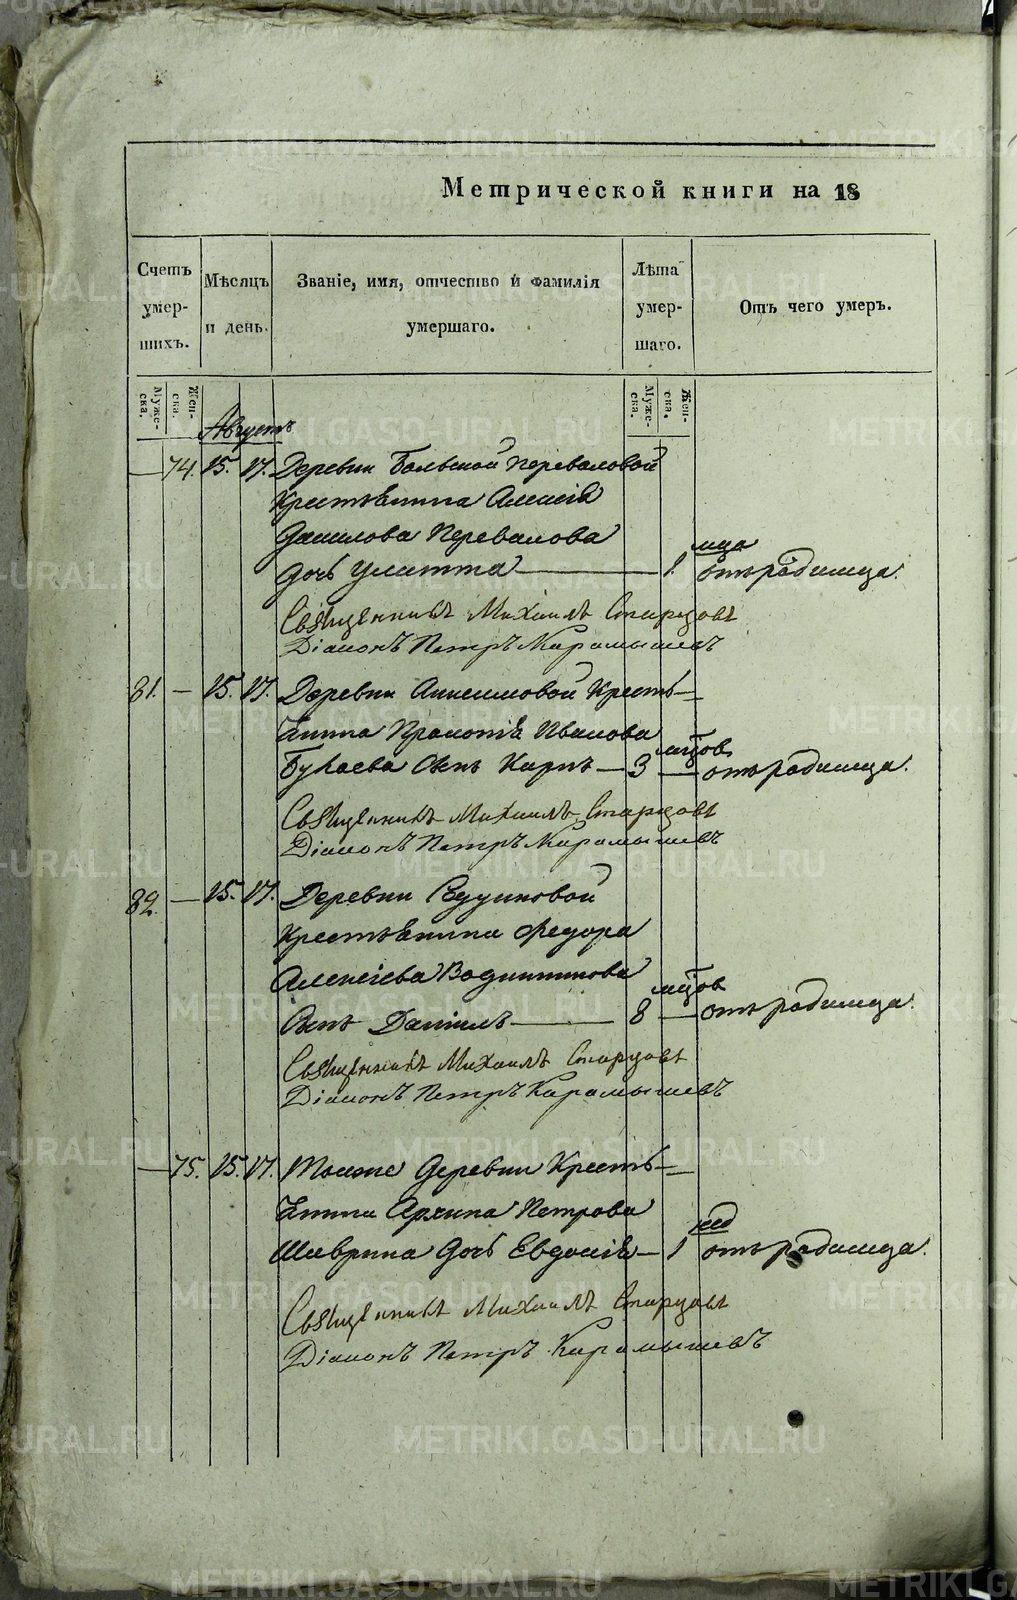 Метрической книги на 18
Счетъ умер-шихъ.
Мѣсяцъ и день.
Званіе, имя, отчество и фамилія умершаго.
Лѣта умер-шаго.
Отъ чего умеръ.
Муже-ска.
Жен-ска.
Муже-ска.
Жен-ска.
Августъ
— 74. 15. 17. Деревни Большой Переваловой
Крестьянина Алексія
Данилова Перевалова мца
дочь Улитта — 1. отъ родимца.
Священникъ Михаилъ Старцовъ
Діаконъ Петръ Карамышевъ
81. — 15. 17. Деревни Анисимовой Кресть-
янина Прокопія Иванова мцов
сынъ Карпъ — 3 — отъ родимца.
Священникъ Михаилъ Старцовъ
Діаконъ Петръ Карамышевъ
82. — 15. 17. Деревни
Крестьянина Федора
Алексіева мцов
сынъ Даніилъ — 8 — отъ родимца.
Священникъ Михаилъ Старцовъ
Діаконъ Петръ Карамышевъ
— 75. 15. 17. Тоиже деревни Кресть-
янина Архипа Петрова нед
Шаврина дочь Евдокія — 1 отъ родимца.
Священникъ Михаилъ Старцовъ
Діаконъ Петръ Карамышевъ
METRIKI.GASO-URAL.RU